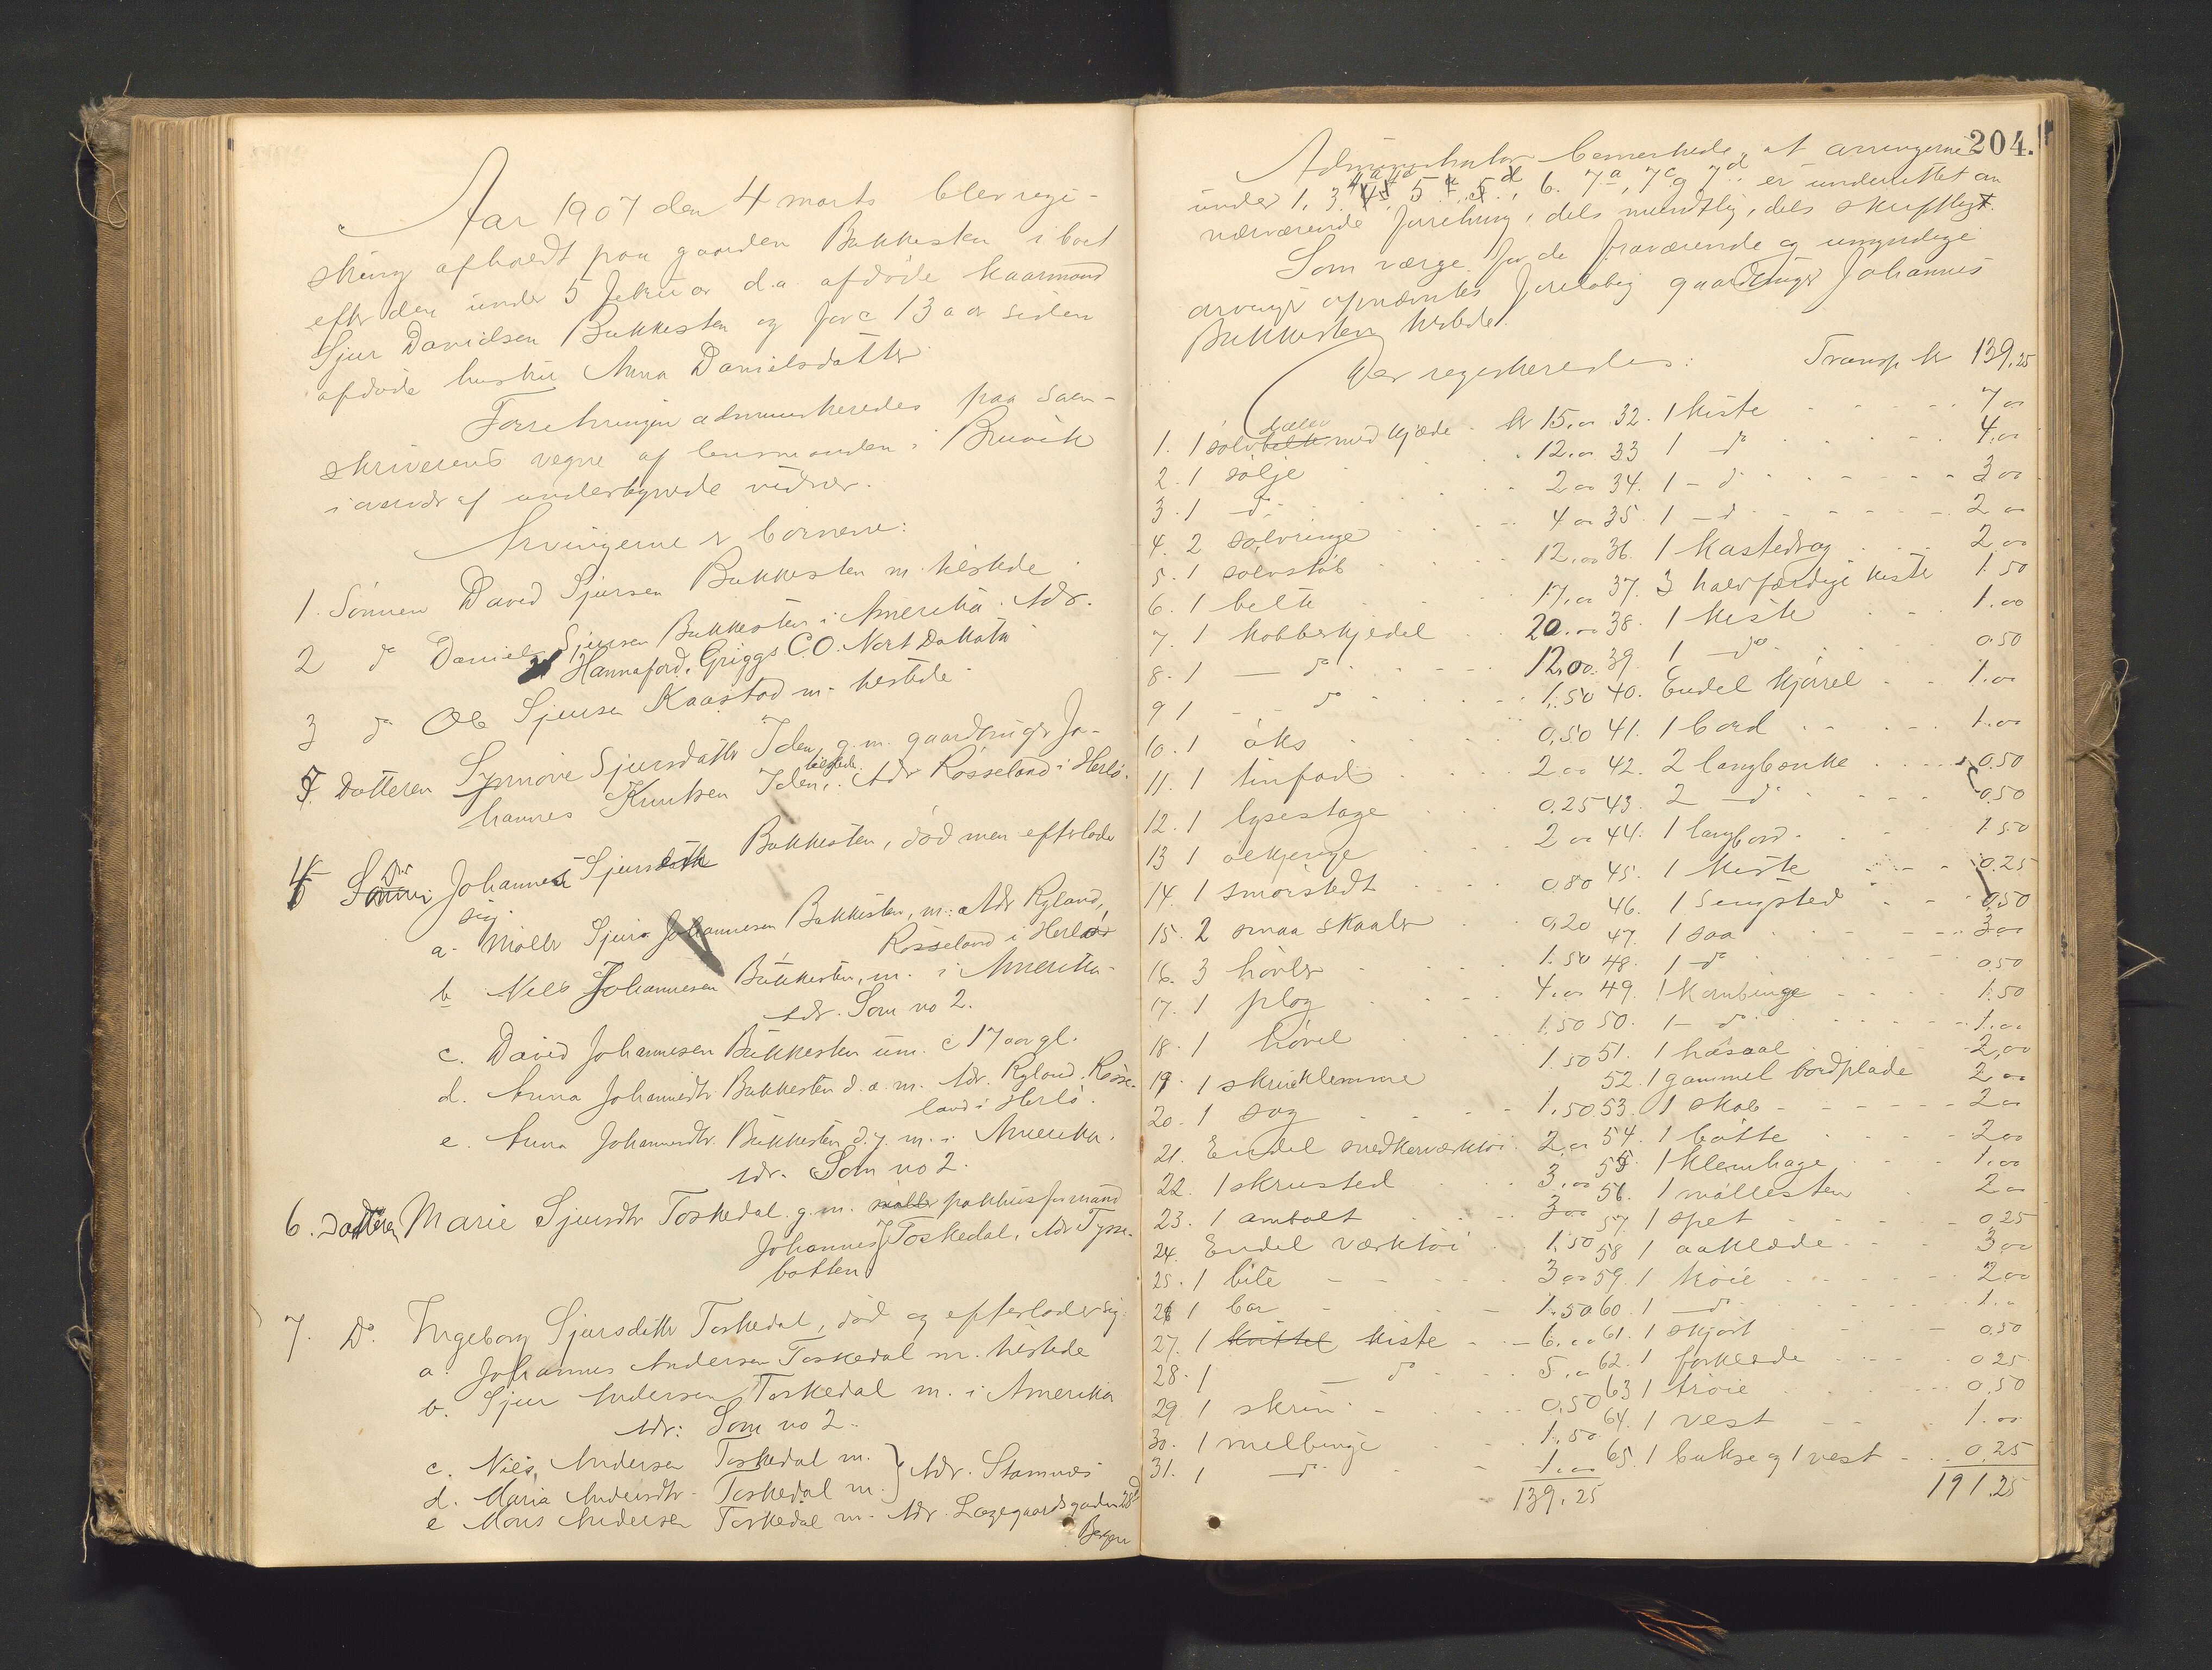 Aar 1907 den 4 marts blev regi-
stering afholdt paa gaarden Bukkesten i boet
efter den under 5 februar d.a. afdøde kaarmand
Sjur Davidsen Bukkesten og for c 13 aar siden
afdøde hustru Anna Danielsdatter.
Forretningen administreredes paa soren-
skriverens vegne af lensmanden i Bruvik
i overvær af undertegnede vidner.
Arvingerne er børnene:
1. Sønnen David Sjursen Bukkesten m. tilstede
2 do Daniel Sjursen Bukkesten i Amerika. Adr.
Hannaford, Griggs CO. Nort Dakota
3 do Ole Sjursen Kaastad m. tilstede
5. Datteren Synnøve Sjursdatter Iden, g.m. gaardbruger Jo-
hannes Knutsen Iden, tilstede. Adr Rosseland i Herlø.
4 Sønnen Johannes Sjursen Bukkesten, død men efterlader
sig.
a. Møller Sjur Johannesen Bukkesten, m: Adr Ryland,
Rosseland i Herlø
b Nels Johannesen Bukkesten, m. i Amerika.
Adr. Som no 2.
c. David Johannesen Bukkesten um. c 17 aar gl.
d. Anna Johannesdtr. Bukkesten d.æ. m. Adr. Ryland, Rosse-
land i Herlø.
e. Anna Johannesdtr. Bukkesten d.y. m. i Amerika.
Adr. Som no 2.
6. Datteren Marie Sjursdtr Toskedal g.m. møller pakhusformand
Johannes J Toskedal, Adr Tysse-
botten
7. Do. Ingeborg Sjursdatter Toskedal, død og efterlader sig:
a. Johannes Andersen Toskedal m. tilstede
b. Sjur Andersen Toskedal m. i Amerika
Adr: Som no 2.
c. Nils Andersen Toskedal m. } Adr. Stamnes
d. Maria Andersdtr. Toskedal m.
e Mons Andersen Toskedal m. Adr. Lægegaardsgaden 28
Bergen
204.
Administrator bemerkede, at arvingerne
under 1, 3, 4a 4d 5, 6. 7a, 7c og 7d er underrettet om
nærværende forretning, dels mundtlig, dels skriftligt.
Som værge for de fraværende og umyndige
arvinge opnævntes foreløbig gaardbruger Johannes
Bukkesten tilstede.
Der registreredes:
1. 1 sølvbelte med kjæde kr 15,00
2. 1 sølje 12.00
3. 1 do 2 00
4. 2 sølvringe 4 00
5. 1 sølvstøb 12,00
6. 1 belte 17,00
7. 1 kobberkjedel 20.00
8. 1 — do 12.00
9 1 — do 1.50
10. 1 øks 0,50
11. 1 tinfad 2 00
12. 1 lysestage 0,25
13 1 ølkjenge 2 00
14. 1 smørstedt 0,80
15. 2 smaa skaaler 0,20
16. 3 høvler 1.50
17. 1 plog 4.00
18. 1 høvel 1.50
19. 1 skrueklemme 1.50
20. 1 sag 1.50
21. Endel snedkerværktøi 2,00
22. 1 skrusted 3,00
23. 1 ambolt 3 00
24. Endel værktøi 1,50
25. 1 bile 3 00
26 1 bor 1.50
27. 1 kvittel kiste 6.00
28. 1 do 5.00
29 1 skrin 0,50
30. 1 melbinge 1.50
31. 1 do 1.00
139.25
Transp. kr 139,25
32. 1 kiste 7 00
33 1 do 4,00
34. 1 — do 3 00
35. 1 — do 2 00
36. 1 kastedrog 2 00
37. 3 halvfærdige kister 1.50
38. 1 kiste 1.00
39. 1 — do 0.50
40. Endel kjørrel 1.00
41. 1 bord 1.00
42. 2 langbenke 0.50
43. 2 — do 0.50
44. 1 langbord 1.50
45. 1 kiste 0.25
46. 1 sengsted 0,50
47. 1 saa 3 00
48. 1 do 0.50
49. 1 kornbinge 1.50
50. 1 — do 1.00
51. 1 hæsaal 2,00
52. 1 gammel bordplade 2,00
53. 1 skab 2 00
54. 1 bøtte 2 00
55. 1 klemhage 1.00
56. 1 møllesten 2 00
57. 1 spet 0,25
58 1 aaklæde 3 00
59. 1 køie 2 00
60. 1 — do 1.
61. 1 skjørt 0.50
62. 1 forklæde 0 25
63 1 trøie 0.50
64. 1 vest 1.00
65. 1 bukse og 1 vest 0.25
191.25